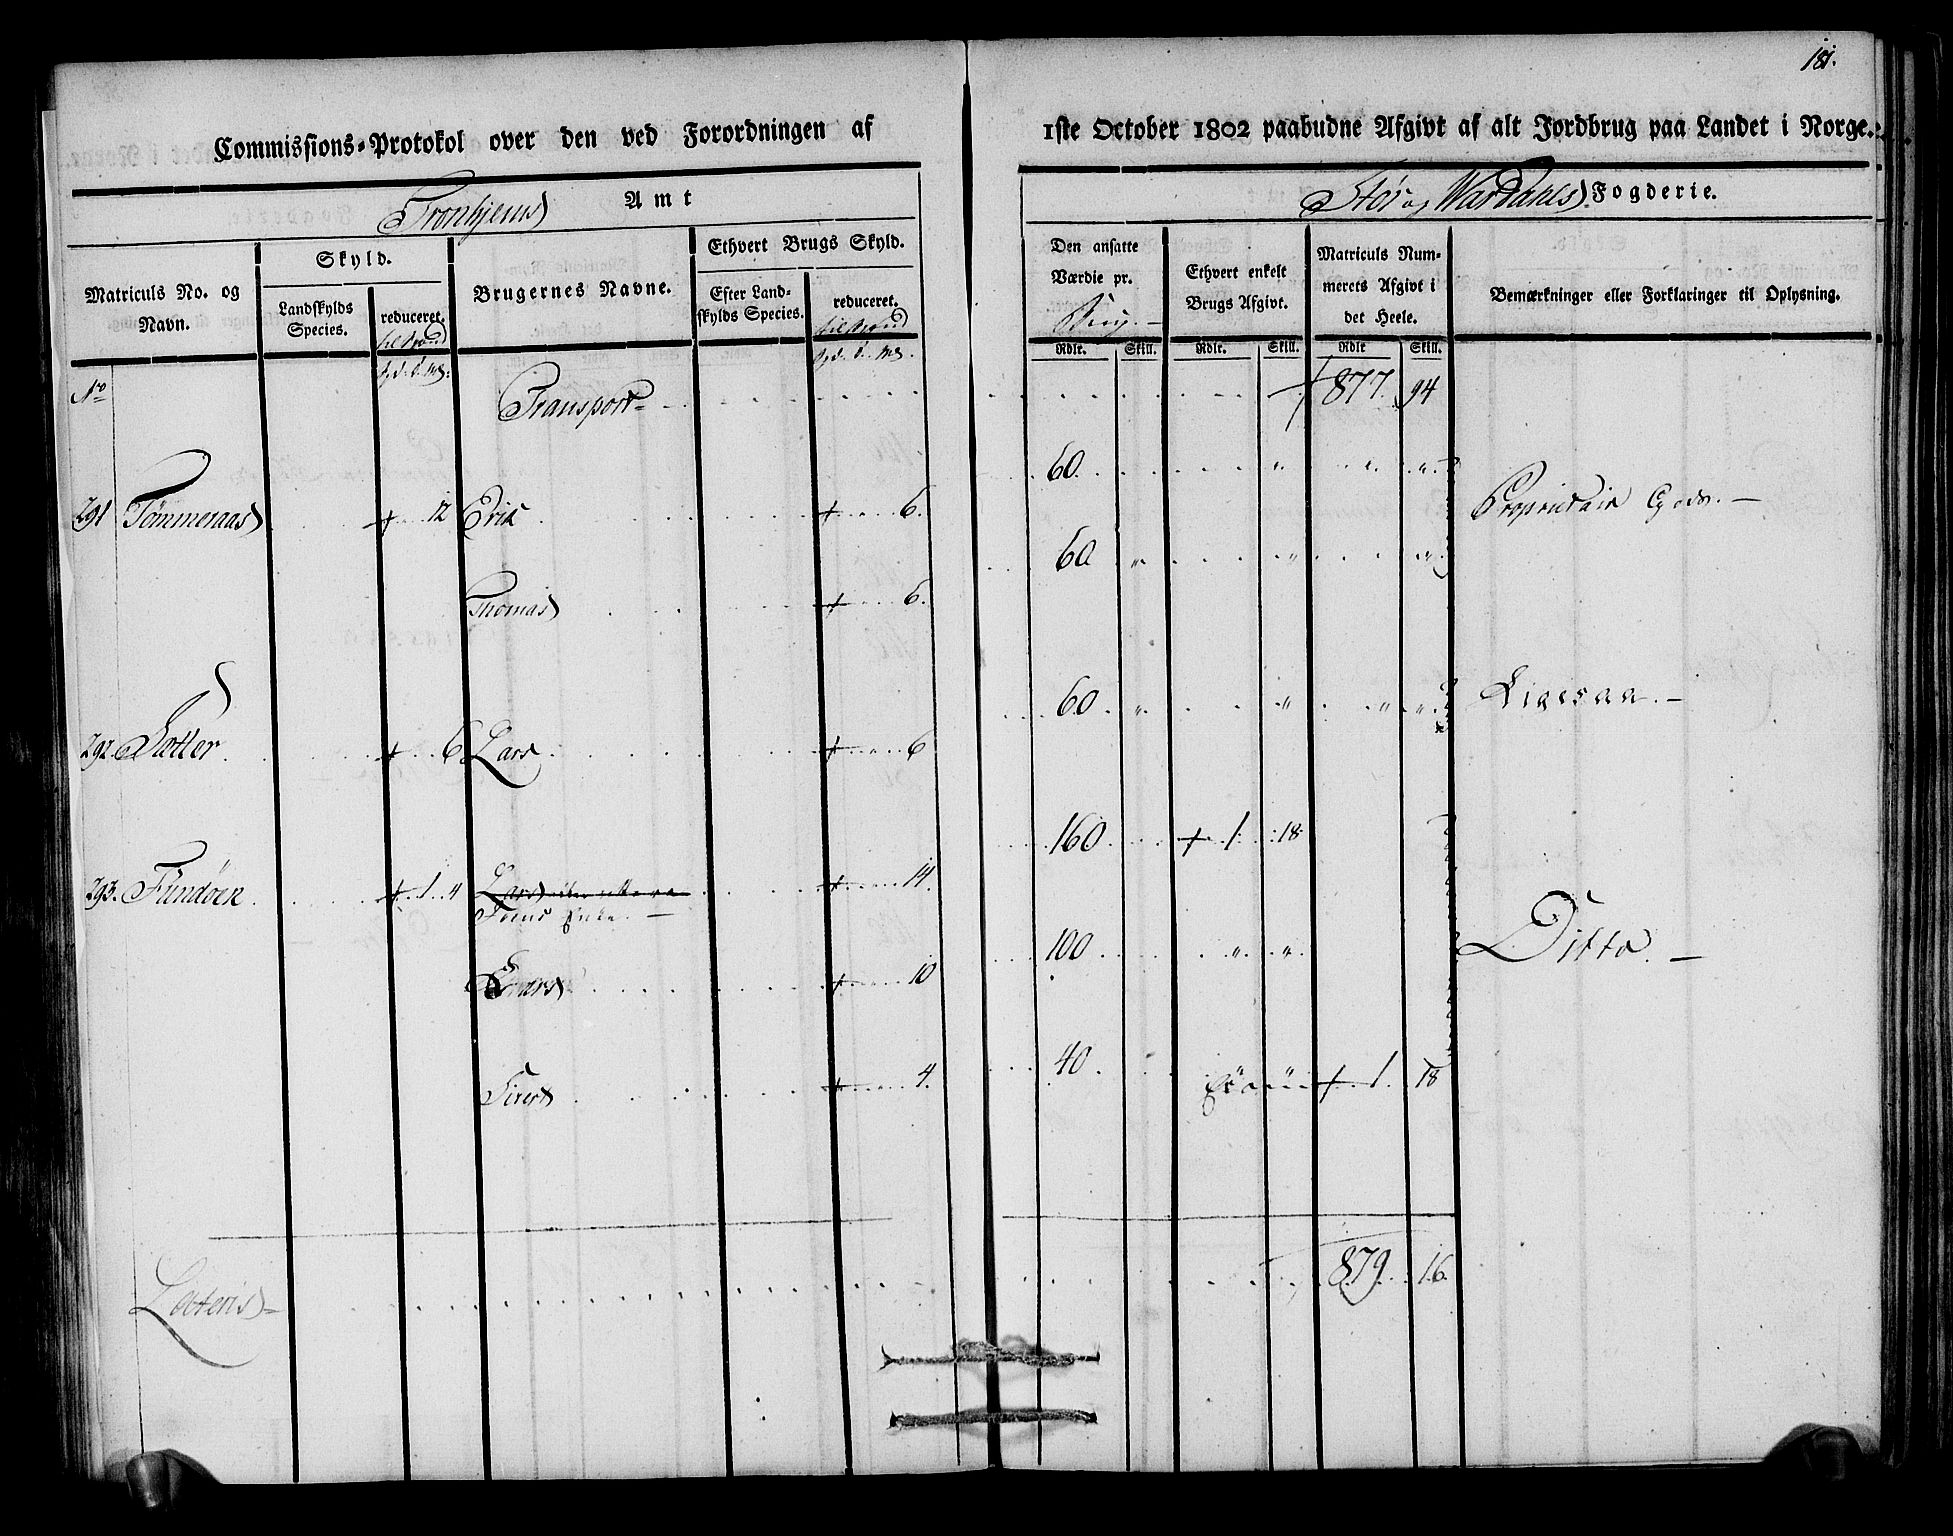 181.
Commissions-Protokol over den ved Forordningen af 1ste October 1802 paabudne Afgivt af alt Jordbrug paa Landet i Norge.
Tronhjems Amt
Stør og Wærdahls Fogderie.
Matriculs No. og Navn.
Skyld.
Landskylds Species.
reduceret.
Brugernes Navne.
Ethvert Brugs Skyld.
Efter Landskylds Species.
reduceret.
Den ansatte Værdie pr. Brug.
Ethvert enkelt Brugs Afgivt.
Matriculs Nummerets Afgivt i det Heele.
Bemærkninger eller Forklaringer til Oplysning.
Rdlr. Skill. Rdlr. Skill. Rdlr Skill.
No
Transport 877. 94
291 Tømmeraas 12 Erik 6. 60. Proprietair Gods.
Thomas 6. 60
292. Sætter 6 Lars 6 60 Ligesaa.
293. Fundøen 1. 4 Lars 14. 160 1. 18
Enke.
10 100 Ditto.
Sivert 4. 40 1. 18
Lateris 879. 16.